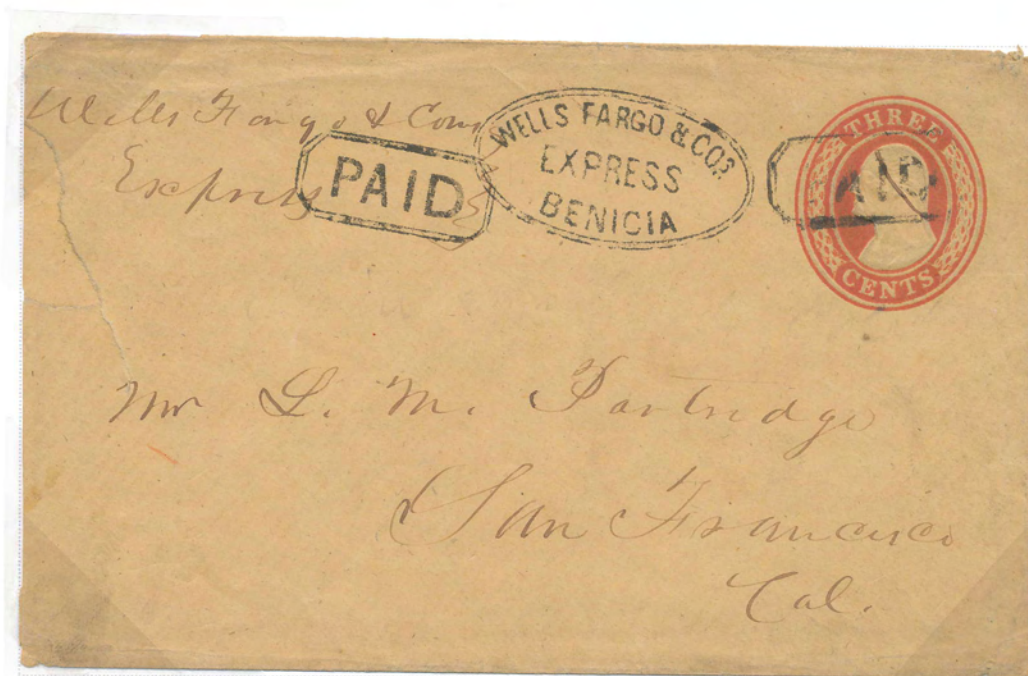 Wells Fargo & Com
Express
PAID
WELLS FARGO & COS.
EXPRESS
BENICIA
PAID
THREE
CENTS
Mr L. M. Partridge
San Francisco
Cal.